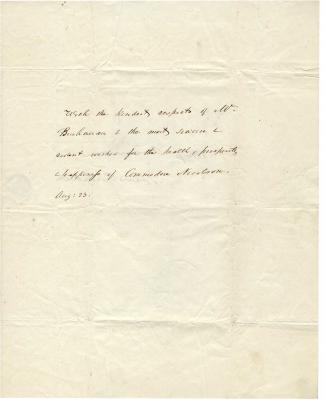 With the kindest respects of Mr.
Buchanan & the most sincere &
ardent wishes for the health, prosperity
& happiness of Commodore
Aug: 23.